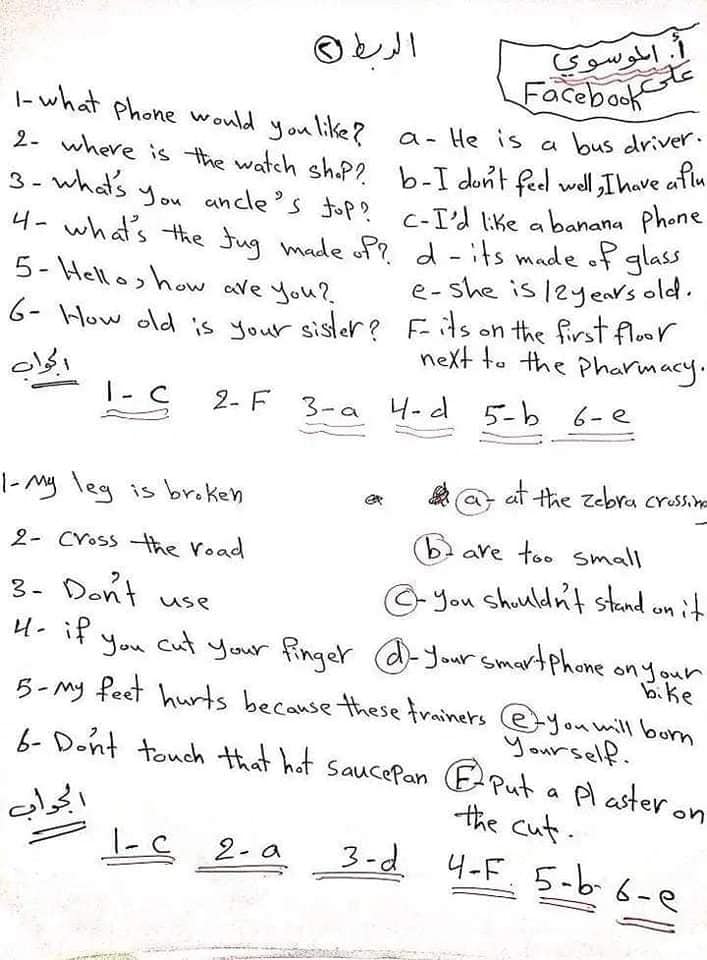 الربط ②
أ. الموسوي
على
Facebook
1- what phone would you like? a- He is a bus driver.
2- where is the watch shop? b-I don't feel well, I have a flu
3- what's you ancle's top? c-I'd like a banana phone
4- what's the Jug made of? d- its made of glass
5- Hello, how are you? e- she is 12 years old.
6- How old is your sister? F- its on the first floor
next to the Pharmacy.
الجواب
1- c 2- F 3-a 4-d 5-b 6-e
1- My leg is broken a- at the zebra crossing
2- Cross the road b- are too small
3- Don't use c- you shouldn't stand on it
4- if you cut your finger d- your smartphone on your
bike
5- My feet hurts because these trainers e- you will born
yourself.
6- Don't touch that hot saucepan F- Put a plaster on
the cut.
الجواب
1-c 2-a 3-d 4-F. 5-b- 6-e